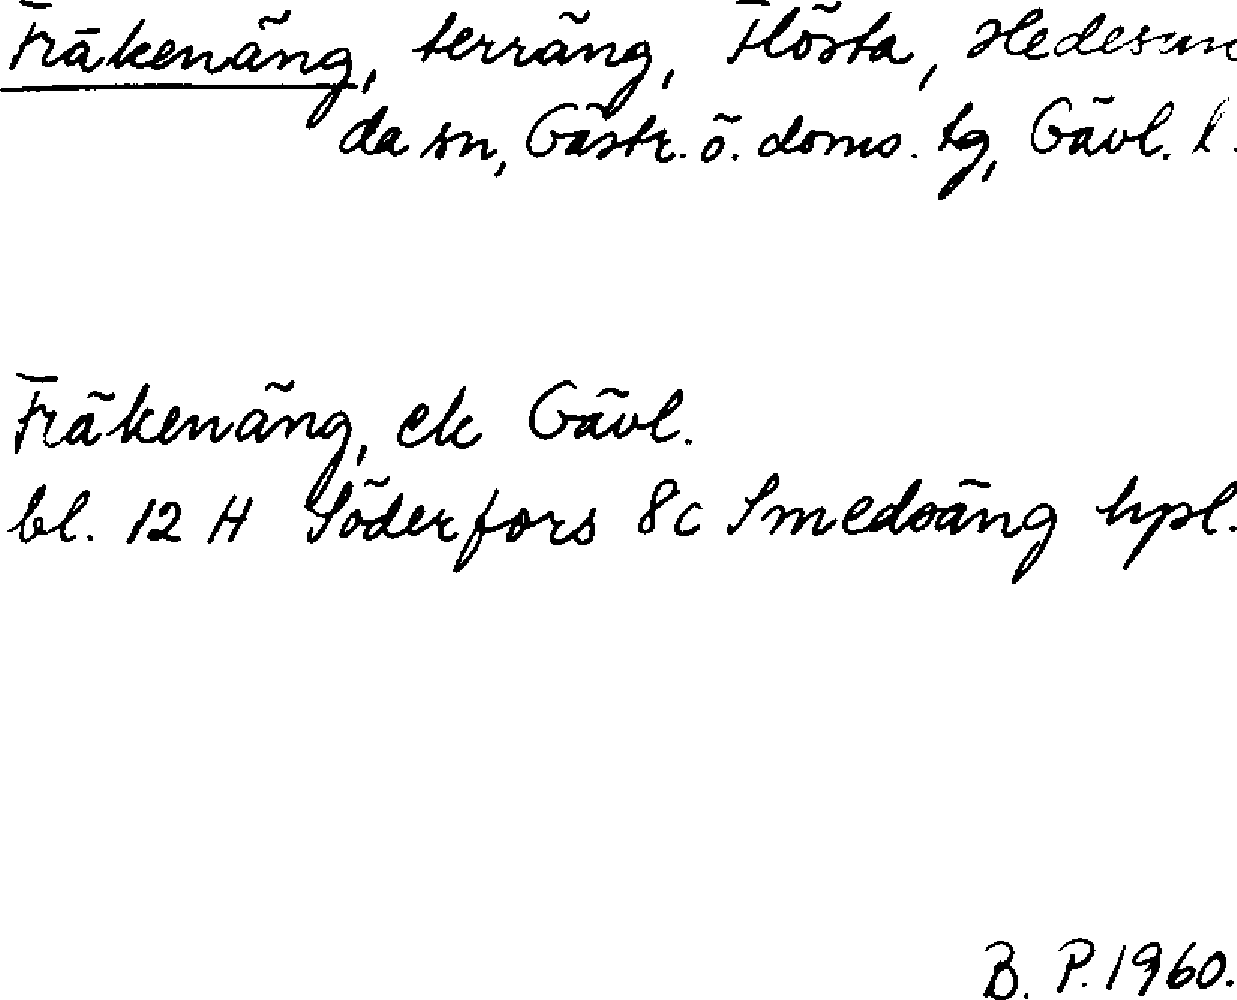 Fräkenäng, terräng, Flösta, Hedesun
da sn, Gästr. ö. doms. tg, Gävl. l.
Fräkenäng, ek Gävl.
bl. 12 H Söderfors 8c Smedsäng hpl.
B. P. 1960.